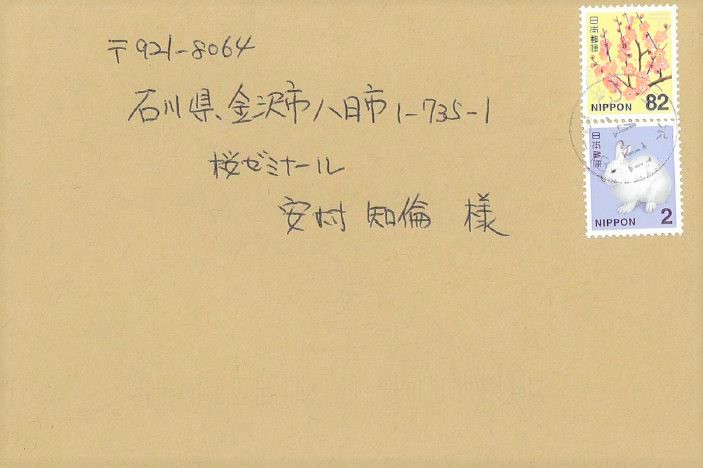 〒921-8064
石川県金沢市八日市1-735-1
桜ゼミナール
安村 知倫 様
日本郵便
NIPPON 82
日本郵便
NIPPON 2